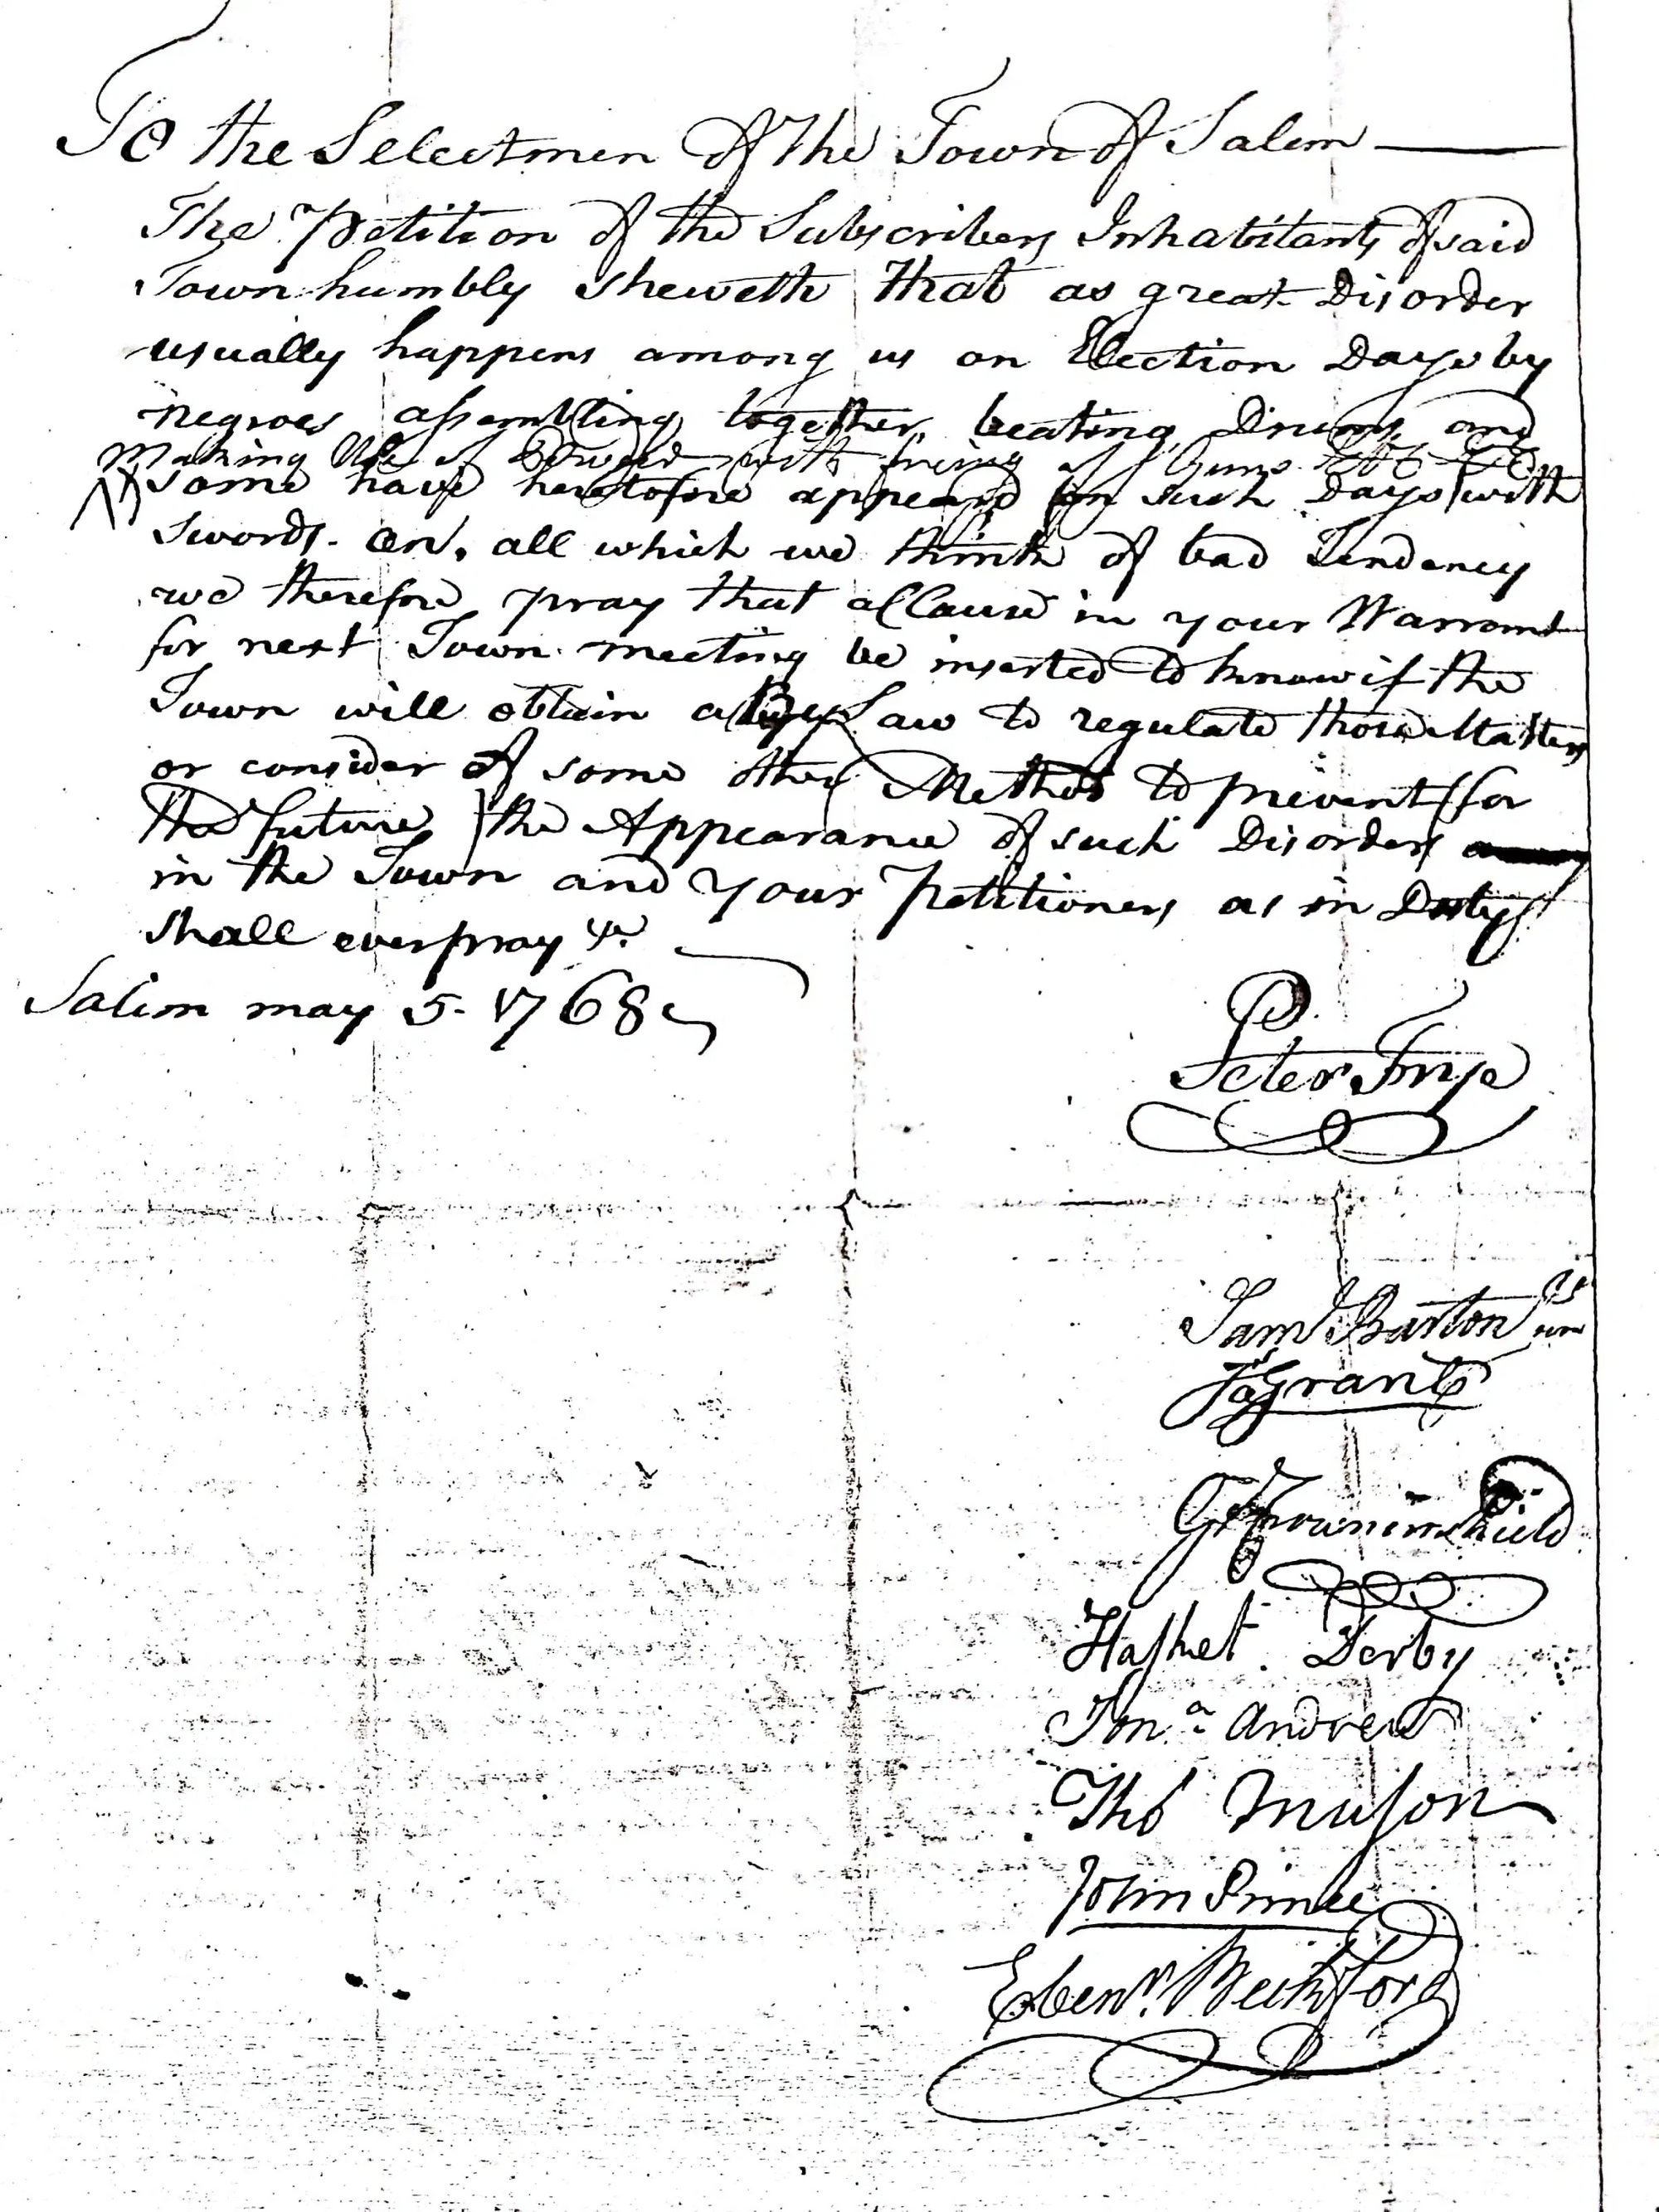 To the Selectmen of the Town of Salem
The Petition of the Subscribers Inhabitants of said
Town humbly sheweth that as great Disorder
usually happens among us on Election Days by
negroes assembling together, beating Drums and
Making Use of Powder with firing of Guns
some have heretofore appeard on such Days with
Swords. all which we think of bad Tendency
we therefore pray that a Clause in your Warrant
for next Town meeting be inserted to know if the
Town will obtain a Law to regulate those Matters
or consider of some other Method to prevent (for
the future) the Appearance of such Disorders
in the Town and your Petitioners as in Duty
shall ever pray &c
Salem may 5. 1768
Peter Frye
Sam Barton
Grant
G Crowninshield
Hasket Derby
Jon.a Andrew
Tho Mason
John Prince
Eben.r